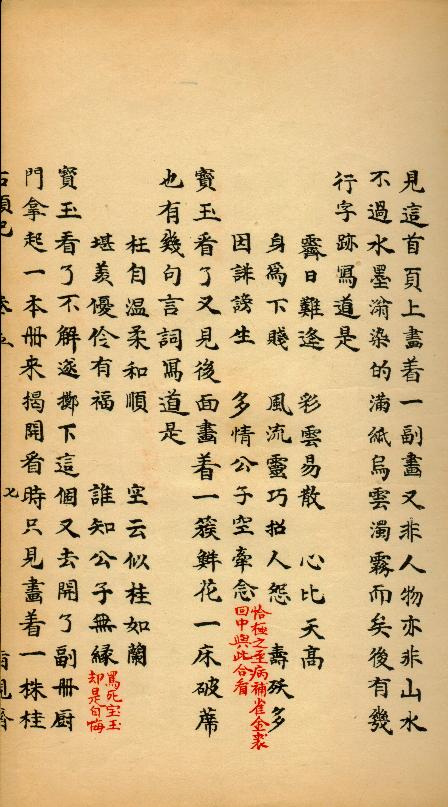 見這首頁上畫着一副畫又非人物亦非山水
不過水墨滃染的滿紙烏雲濁霧而矣後有幾
行字跡寫道是
霽日難逢　彩雲易散　心比天高
身爲下賤　風流靈巧招人怨　壽殀多
因誹謗生　多情公子空牽念
恰極之至病補雀金裘
回中與此合看
寳玉看了又見後面畫着一簇鮮花一床破蓆
也有幾句言詞寫道是
枉自温柔和順　空云似桂如蘭
堪羡優伶有福　誰知公子無緣
罵死宝玉
却是自悔
寳玉看了不解遂擲下這個又去開了副册厨
門拿起一本册來揭開看時只見畫着一株桂